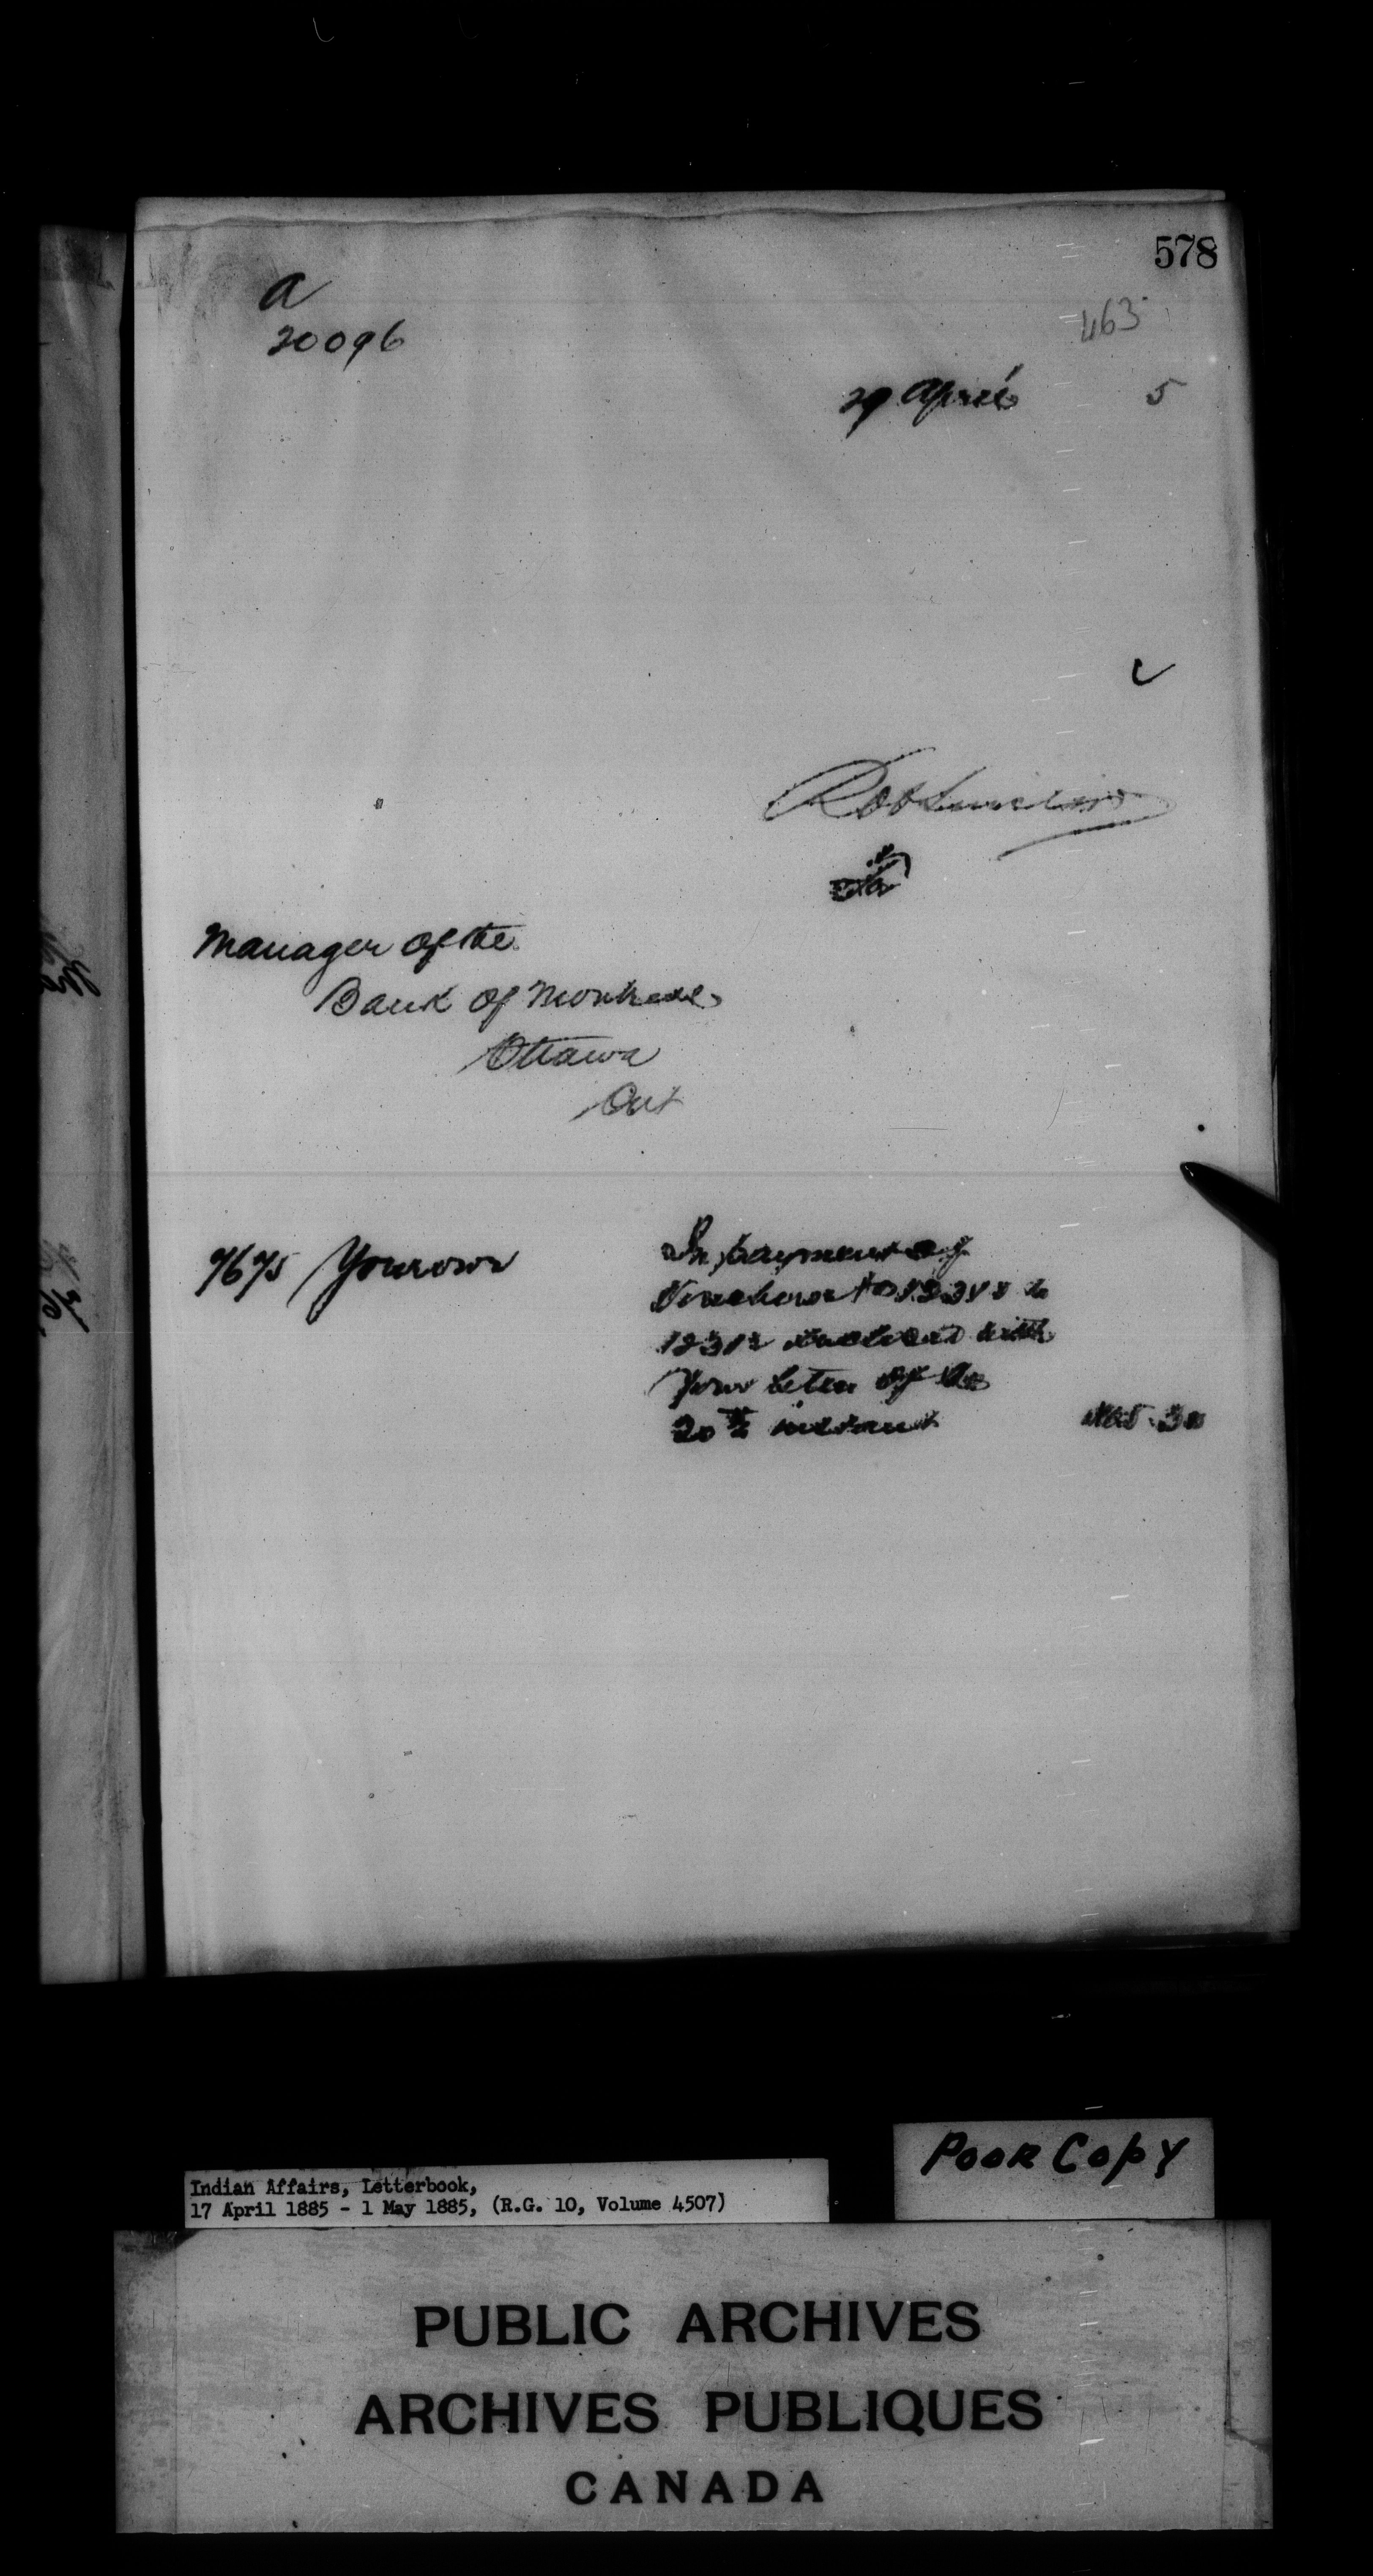 578
a
20096
463
29 April 5
Manager of the
Bank of Montreal
Ottawa
Ont
7675 Yourown
In payment of
Vouchers
with
your letter of the
20th instant
Poor Copy
Indian Affairs, Letterbook,
17 April 1885 - 1 May 1885, (R.G. 10, Volume 4507)
PUBLIC ARCHIVES
ARCHIVES PUBLIQUES
CANADA